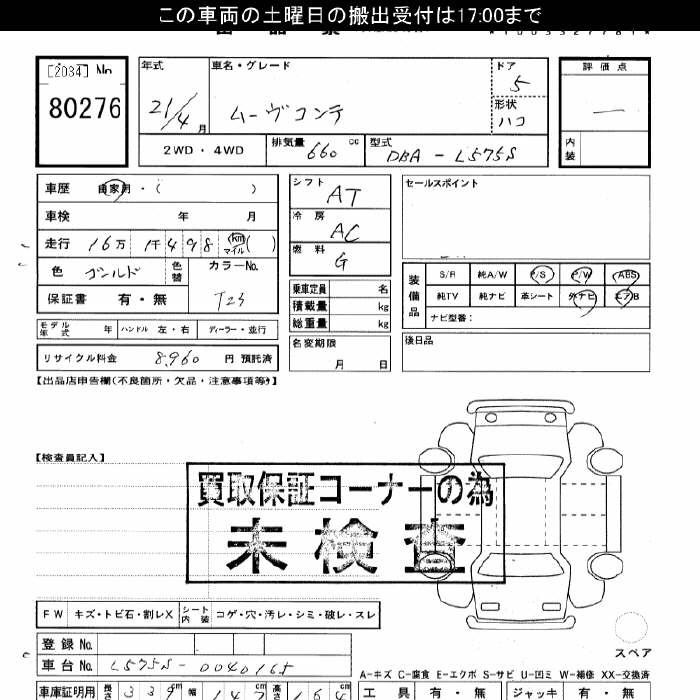 この車両の土曜日の搬出受付は17:00まで
[2034] No
80276
年式
21/4 月
車名・グレード
ムーヴコンテ
ドア
5
形状
ハコ
評価点
―
内装
2WD・4WD
排気量
660 cc
型式
DBA - L575S
車歴 自家用・( )
車検 年 月
走行 16万 1千498 km マイル ( )
色 ゴールド
色替
カラーNo.
T23
保証書 有・無
モデル年式 年
ハンドル 左・右
ディーラー・並行
リサイクル料金 8,960 円 預託済
シフト
AT
冷房
AC
燃料
G
乗車定員 名
積載量 kg
総重量 kg
名変期限
月 日
セールスポイント
装備品
S/R 純A/W P/S P/W ABS
純TV 純ナビ 革シート 外ナビ エアB
ナビ型番:
後日品
【出品店申告欄(不良箇所・欠品・注意事項等)】
【検査員記入】
買取保証コーナーの為
未検査
FW キズ・トビ石・割レX
シート内装 コゲ・穴・汚レ・シミ・破レ・スレ
スペア
登録No.
車台No. L575S-0040165
A-キズ C-腐食 E-エクボ S-サビ U-凹ミ W-補修 XX-交換済
車庫証明用 長さ 339cm 幅 147cm 高さ 164cm
工具 有・無 ジャッキ 有・無